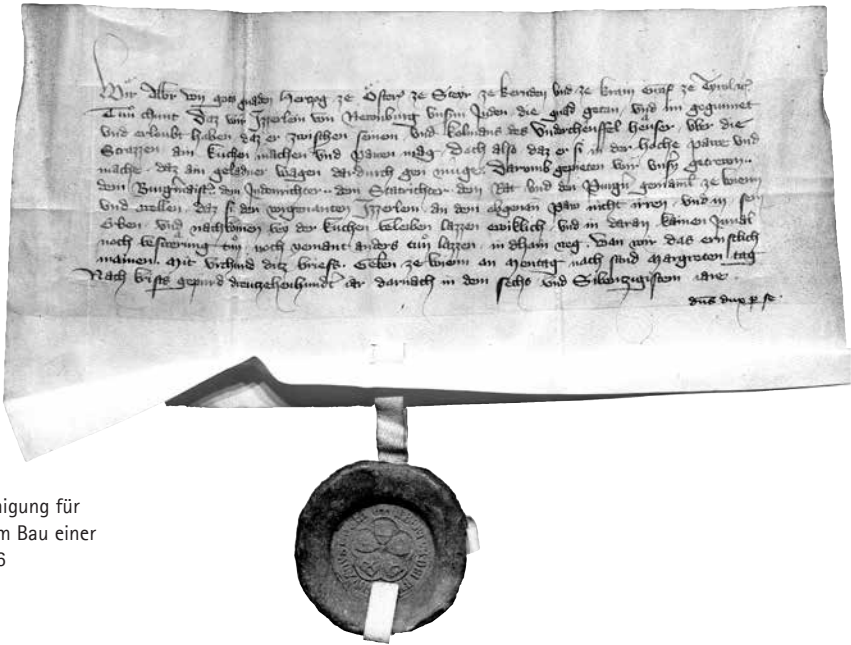 Wir Albr von gots gnaden Hertzog ze Österr ze Steyr ze kernden und ze krain Graf ze Tyrol etc
Tun chunt Daz wir Izzerlein von Newnburg unserm Juden, die gnad getan, und im gegunnet
und erlaubt haben, daz er zwischen seinen, und kolmans des Underchewfel hewser, uber die
Strazzen, ain kuchen machen und pawen mag, Doch also daz er si in der hoche pawe und
mache, daz ain geladner wagen dardurch gen müge, Darumb gepieten wir unsn getrewn..
dem Burgmaistr dem Judenrichter.. dem Statrichter.. dem Rat, und den Purgern gemainl ze wienn
und wellen, daz si den vorgenanten Izzerlein, an dem egenan paw nicht irren, und in sein
Erben, und nachkomen bey der kuchen beleiben lazzen ewiklich, und in daran, kainen Inval
noch beswerung tun, noch yemant anders tun lazzen, in dhain weg, Wan wir das ernstlich
mainen, Mit urchund ditz briefs, Geben ze wienn an Montag nach sand Margreten tag
Nach krists gepurd drewtzehenhundert iar darnach in dem sechs und Sibenzigistem iare.
dns dux p se.
igung für
m Bau einer
6